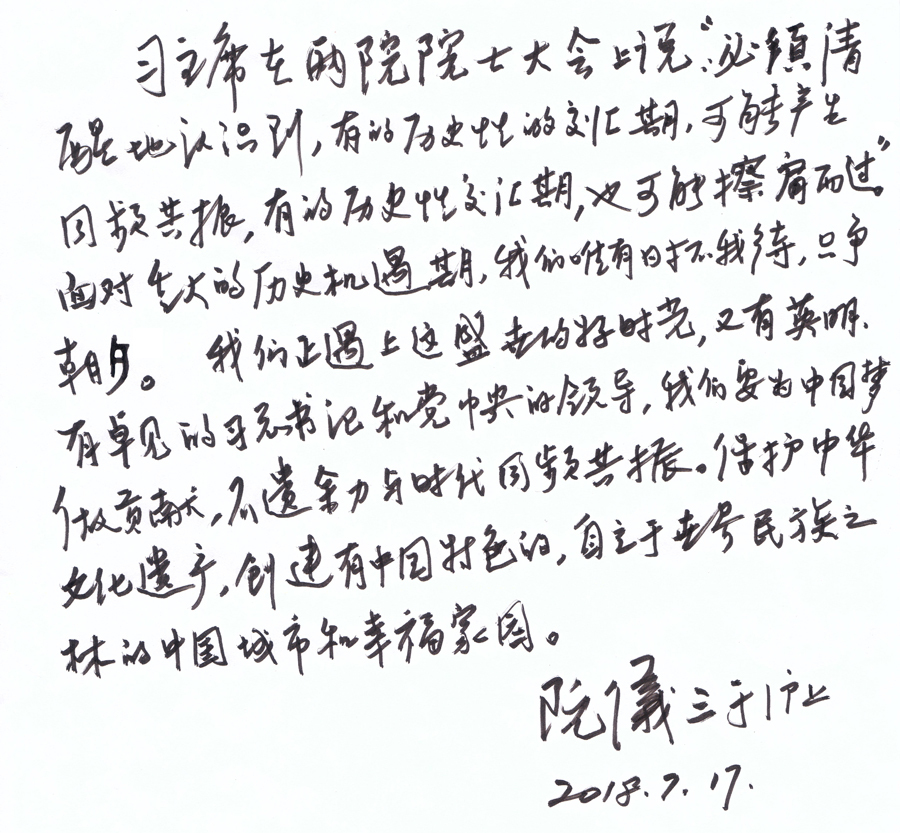 习主席在两院院士大会上说:“必须清
醒地认识到,有的历史性的交汇期,可能产生
同频共振,有的历史性交汇期,也可能擦肩而过”。
面对伟大的历史机遇期,我们唯有时不我待,只争
朝夕。我们正遇上这盛世的好时光,又有英明、
有卓见的习总书记和党中央的领导,我们要为中国梦
做贡献,不遗余力与时代同频共振。保护中华
文化遗产,创建有中国特色的,自立于世界民族之
林的中国城市和幸福家园。
阮儀三于沪上
2018.7.17.